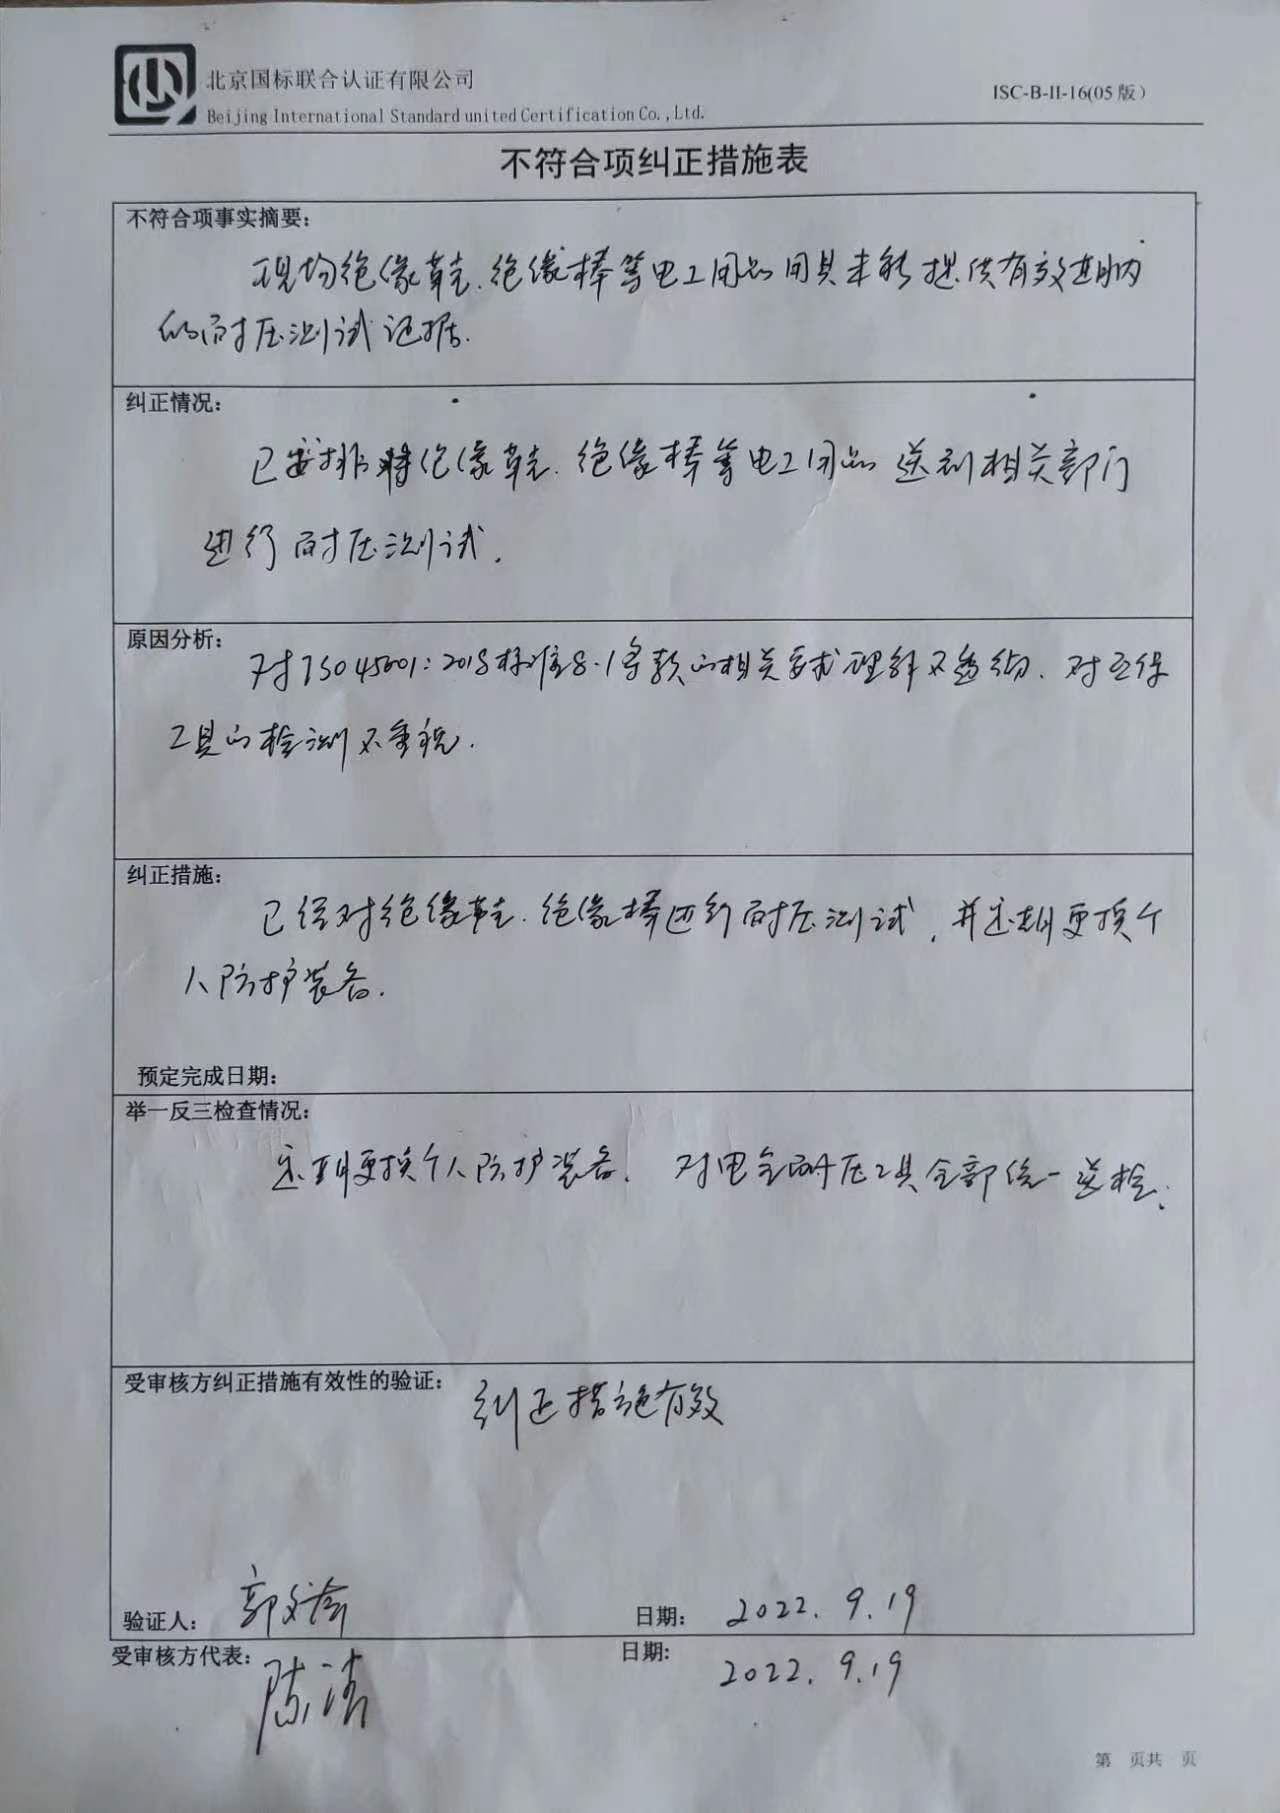 北京国标联合认证有限公司
ISC-B-II-16(05 版)
Beijing International Standard united Certification Co.,Ltd.
不符合项纠正措施表
不符合项事实摘要:
现场绝缘靴、绝缘棒等电工用品用具未能提供有效期内
的耐压测试证据.
纠正情况:
已安排将绝缘靴、绝缘棒等电工用品送到相关部门
进行耐压测试.
原因分析:
对ISO45001:2018标准8.1条款的相关要求理解不透彻、对
工具的检测不重视.
纠正措施:
已经对绝缘靴、绝缘棒进行耐压测试,并定期更换个
人防护装备.
预定完成日期:
举一反三检查情况:
定期更换个人防护装备、对电工耐压工具全部统一送检.
受审核方纠正措施有效性的验证:
纠正措施有效
验证人: 郭文
日期: 2022.9.19
受审核方代表: 陈
日期: 2022.9.19
第 页共 页